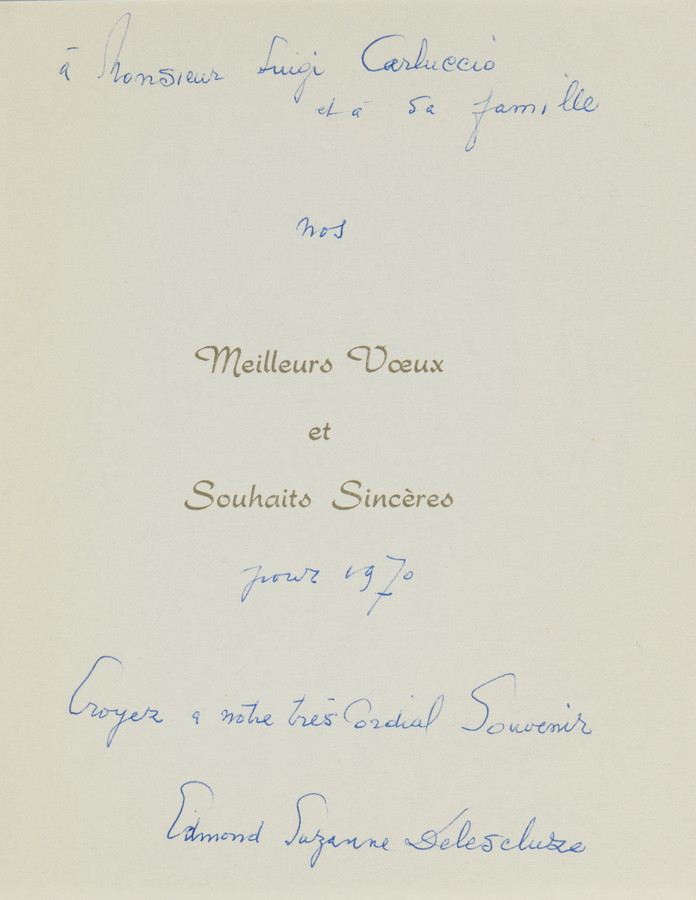 à Monsieur Luigi Carluccio
et à sa famille
nos
Meilleurs Vœux
et
Souhaits Sincères
pour 1970
Croyez a notre très Cordial Souvenir
Edmond Suzanne Delescluze